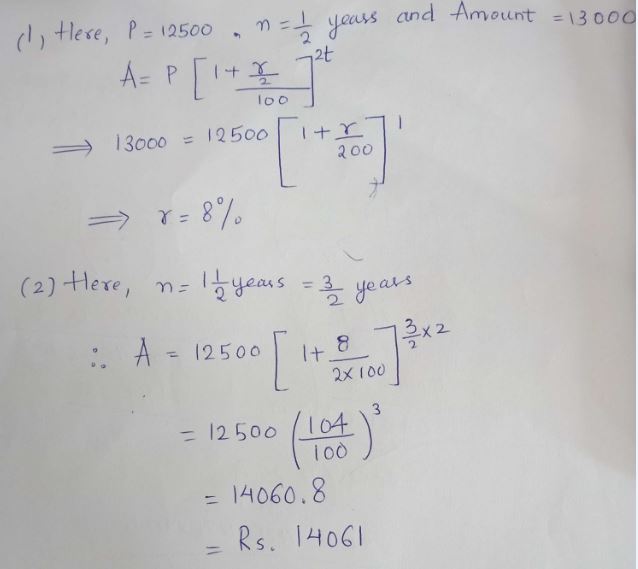 (1) Here, P = 12500 . n = 1/2 years and Amount = 13000
A = P [1 + (r/2)/100]^2t
⟹ 13000 = 12500 [1 + r/200]^1
⟹ r = 8%
(2) Here, n = 1 1/2 years = 3/2 years
∴ A = 12500 [1 + 8/(2×100)]^(3/2 × 2)
= 12500 (104/100)^3
= 14060.8
= Rs. 14061